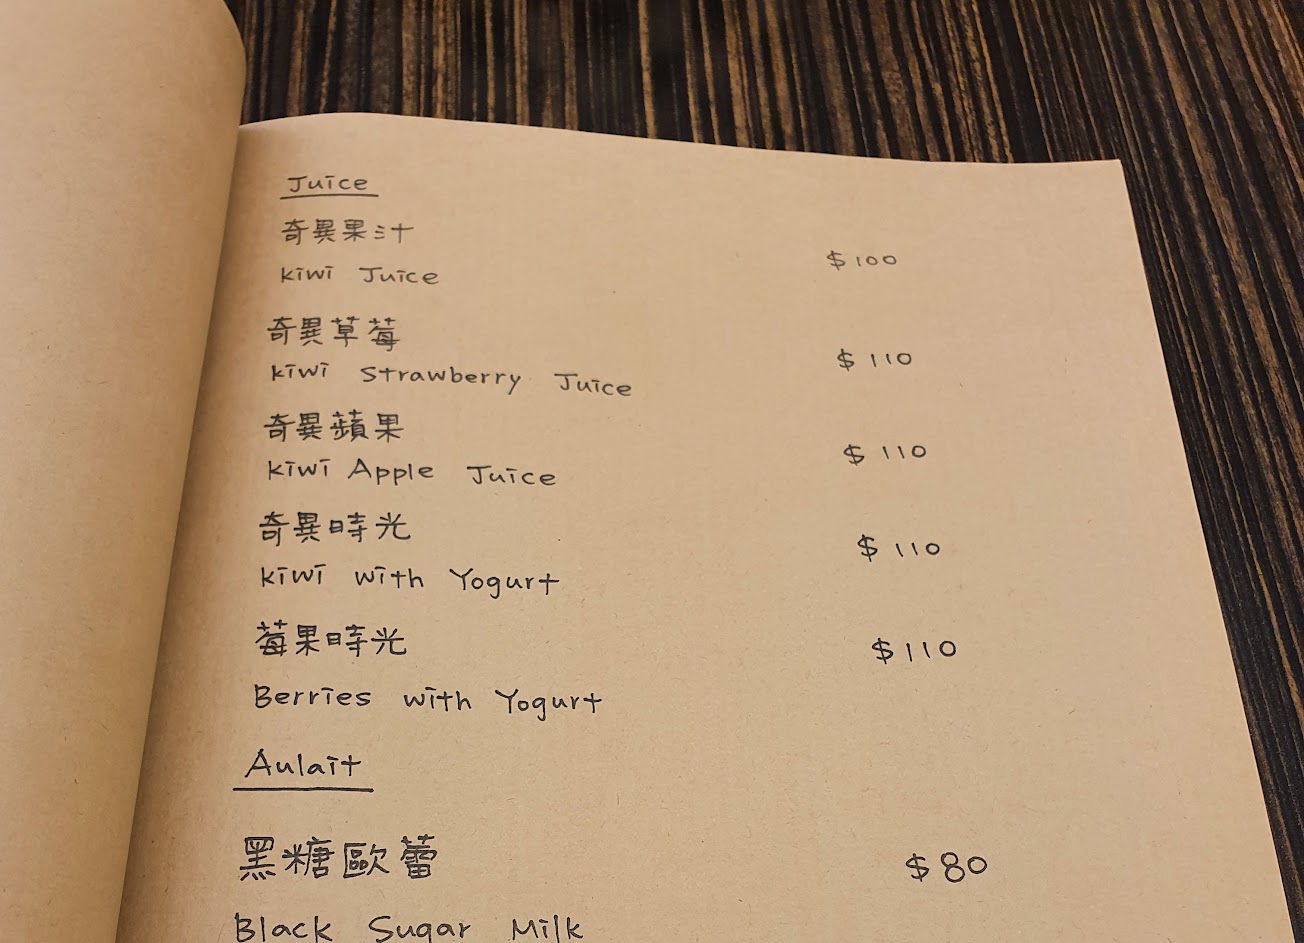 Juice
奇異果汁
kiwi Juice
$100
奇異草莓
kiwi Strawberry Juice
$110
奇異蘋果
kiwi Apple Juice
$110
奇異時光
kiwi with Yogurt
$110
莓果時光
Berries with Yogurt
$110
Aulait
黑糖歐蕾
Black Sugar Milk
$80